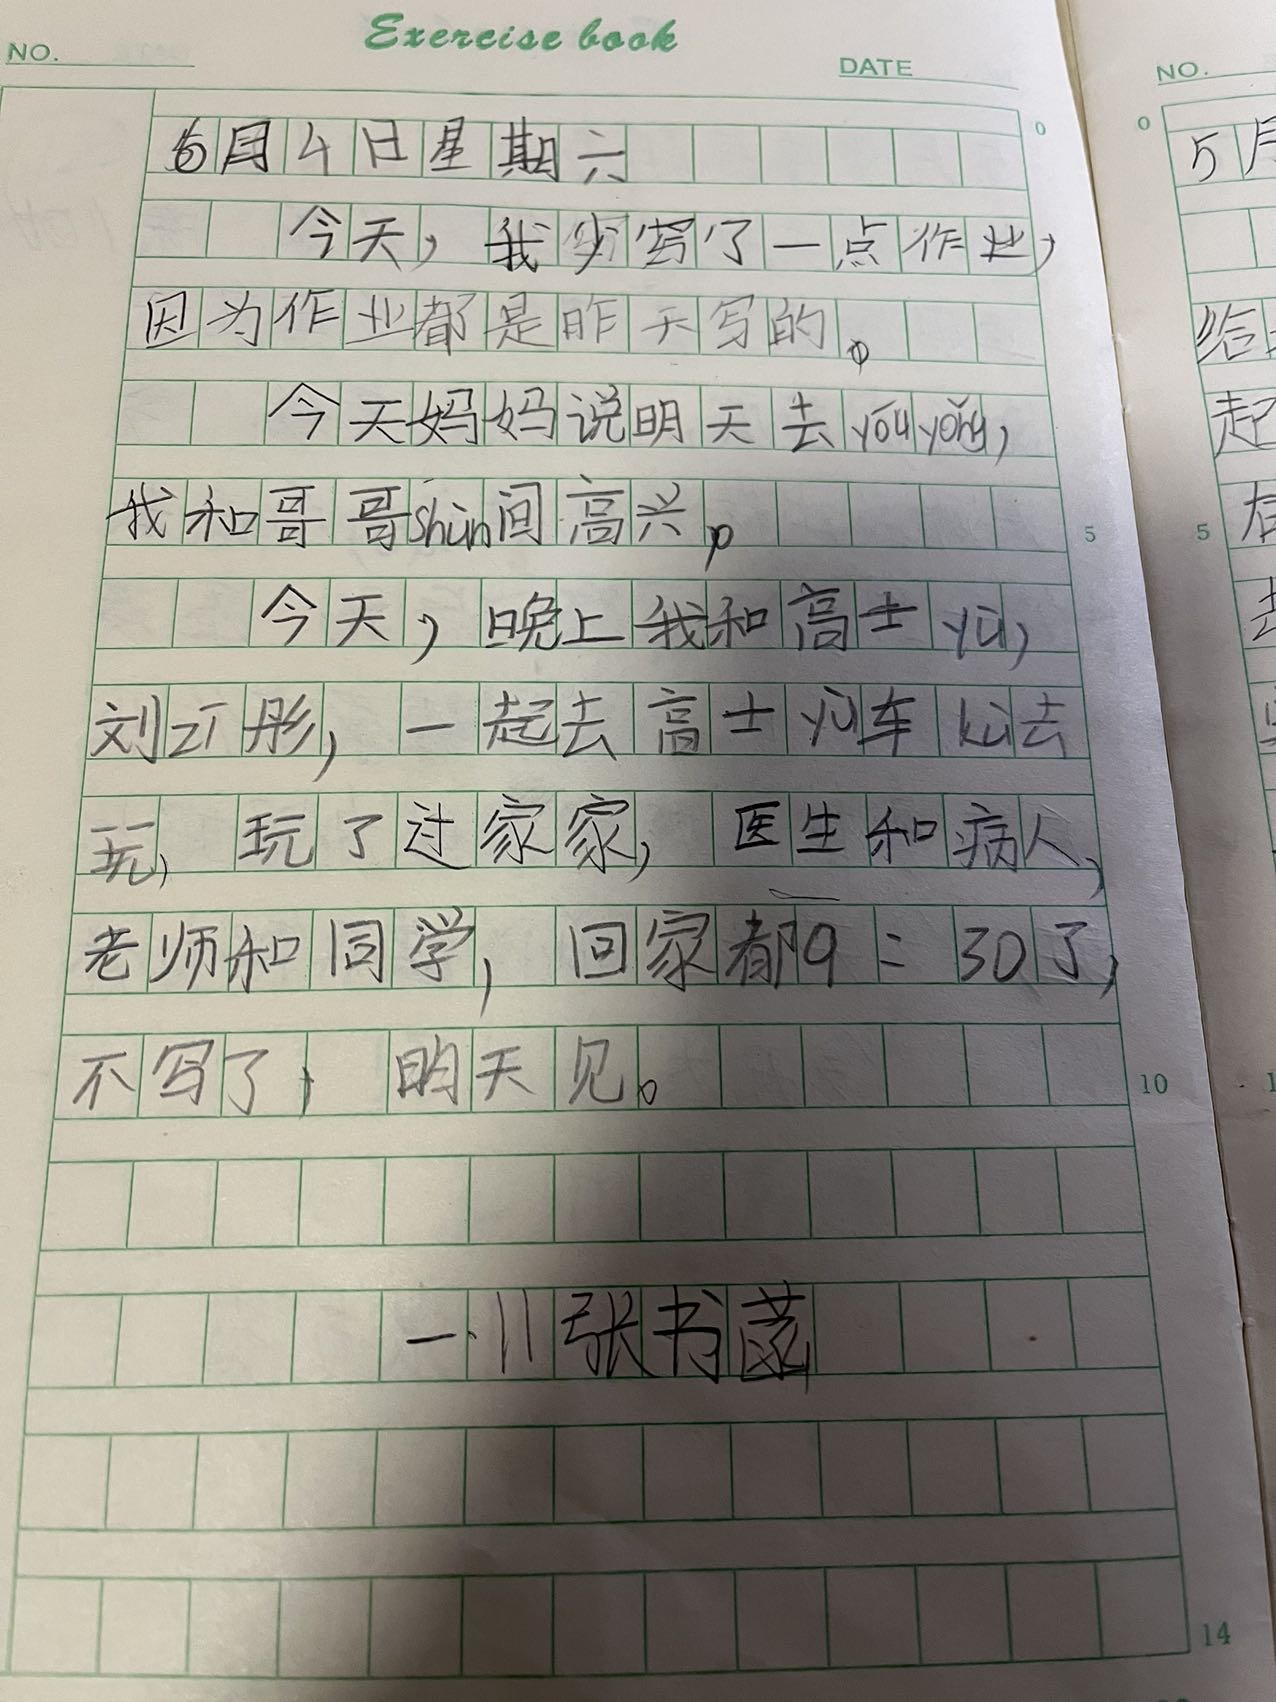 Exercise book
NO.
DATE
6月4日星期六
今天，我少写了一点作业，
因为作业都是昨天写的。
今天妈妈说明天去yóuyǒng，
我和哥哥shùn间高兴。
今天，晚上我和高士yù，
刘江彤，一起去高士yù车kù去
玩，玩了过家家，医生和病人，
老师和同学，回家都9：30了，
不写了，明天见。
一·11张书菡
0
5
10
14
NO.
0
5月
给
起
5